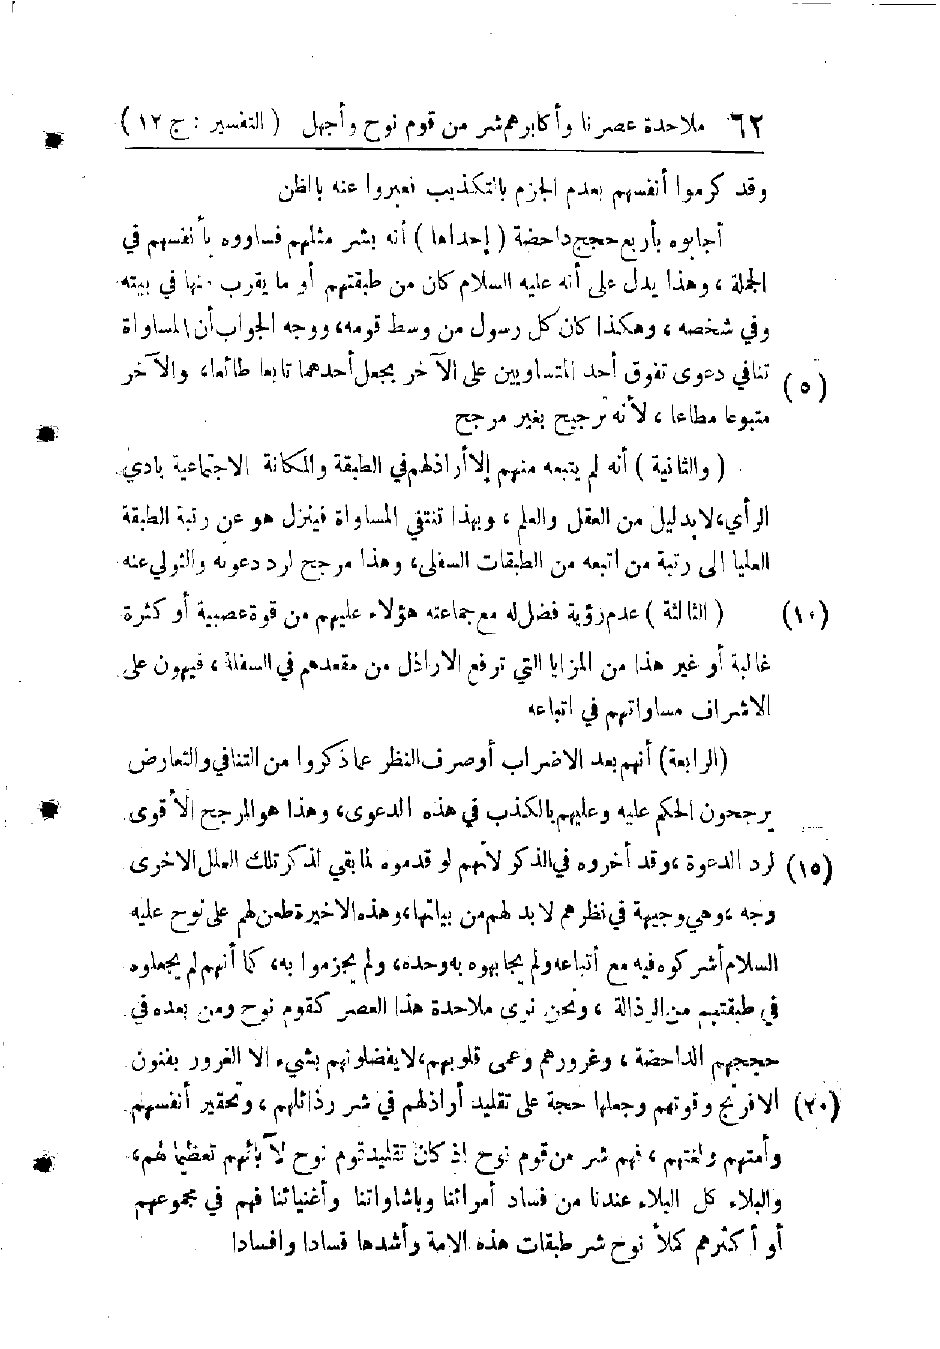 ٦٢ ملاحدة عصرنا وأكابرهم شر من قوم نوح وأجهل ( التفسير : ج ١٢ )
وقد كرموا أنفسهم بعدم الجزم بالتكذيب فعبروا عنه بالظن
أجابوه بأربع حجج داحضة ( إحداها ) أنه بشر مثلهم فساووه بأنفسهم في
الجملة ، وهذا يدل على أنه عليه السلام كان من طبقتهم أو ما يقرب منها في بيته
وفي شخصه ، وهكذا كان كل رسول من وسط قومه، ووجه الجواب أن المساواة
(٥) تنافي دعوى تفوق أحد المتساويين على الآخر بجعل أحدهما تابعا طائعا، والآخر
متبوعا مطاعا ، لأنه ترجيح بغير مرجح
( والثانية ) أنه لم يتبعه منهم إلا أراذلهم في الطبقة والمكانة الاجتماعية بادي
الرأي، لا بدليل من العقل والعلم ، وبهذا تنتفي المساواة فينزل هو عن رتبة الطبقة
العليا الى رتبة من اتبعه من الطبقات السفلى، وهذا مرجح لرد دعوته والتولي عنه
(١٠) ( الثالثة ) عدم رؤية فضل له مع جماعته هؤلاء عليهم من قوة عصبية أو كثرة
غالبة أو غير هذا من المزايا التي ترفع الاراذل من مقعدهم في السفلة ، فيهون على
الاشراف مساواتهم في اتباعه
(الرابعة) أنهم بعد الاضراب أو صرف النظر عما ذكروا من التنافي والتعارض
يرجحون الحكم عليه وعليهم بالكذب في هذه الدعوى، وهذا هو المرجح الأقوى
(١٥) لرد الدعوة ، وقد أخروه في الذكر لأنهم لو قدموه لما بقي لذكر تلك العلل الاخرى
وجه ، وهي وجيهة في نظرهم لا بد لهم من بيانها، وهذه الاخيرة طعن لهم على نوح عليه
السلام أشركوه فيه مع أتباعه ولم يجابهوه به وحده، ولم يجزموا به، كما أنهم لم يجعلوه
في طبقتهم من الرذالة ، ونحن نرى ملاحدة هذا العصر كقوم نوح ومن بعده في
حججهم الداحضة ، وغرورهم وعمى قلوبهم، لا يفضلونهم بشيء الا الغرور بفنون
(٢٠) الافرنج وقوتهم وجعلها حجة على تقليد أراذلهم في شر رذائلهم ، وتحقير أنفسهم
وأمتهم ولغتهم ، فهم شر من قوم نوح اذ كان تقليد قوم نوح لآبائهم تعظيما لهم،
والبلاء كل البلاء عندنا من فساد أمرائنا وباشاواتنا وأغنيائنا فهم في مجموعهم
أو أكثرهم كملأ نوح شر طبقات هذه الامة وأشدها فسادا وافسادا